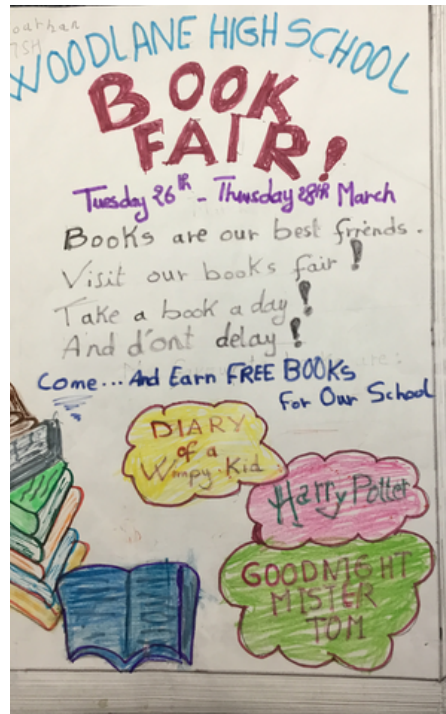 WOODLANE HIGH SCHOOL
BOOK
FAIR!
Tuesday 26th - Thursday 28th March
Books are our best friends.
Visit our books fair!
Take a book a day!
And d'ont delay!
Come... And Earn FREE BOOKS
For Our School
DIARY
of a
Wimpy Kid
Harry Potter
GOODNIGHT
MISTER
TOM